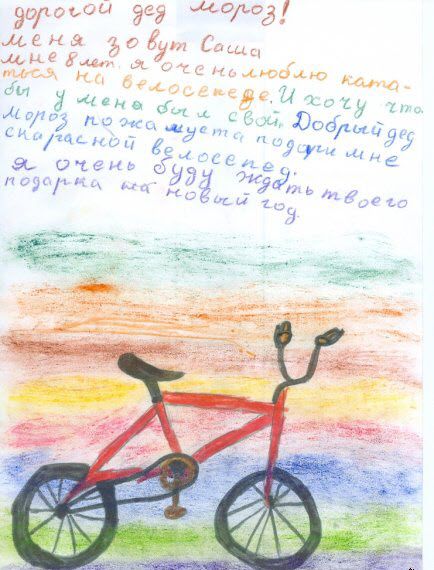 дорогой дед мороз!
меня зовут Саша
мне 8 лет. я очень люблю ката-
ться на велосепеде. И хочу что
бы у меня был свой. Добрый дед
мороз пожалуста подари мне
скарасной велосепед.
я очень буду ждать твоего
подарка на новый год.